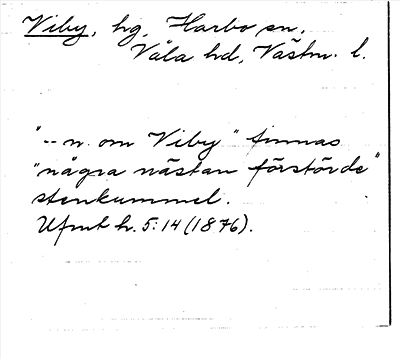 Viby, hg, Harbo sn,
Våla hd, Västm. l.
"--n. om Viby" finnas
"några nästan förstörde"
stenkummel.
Ufmt h. 5:14 (1876).